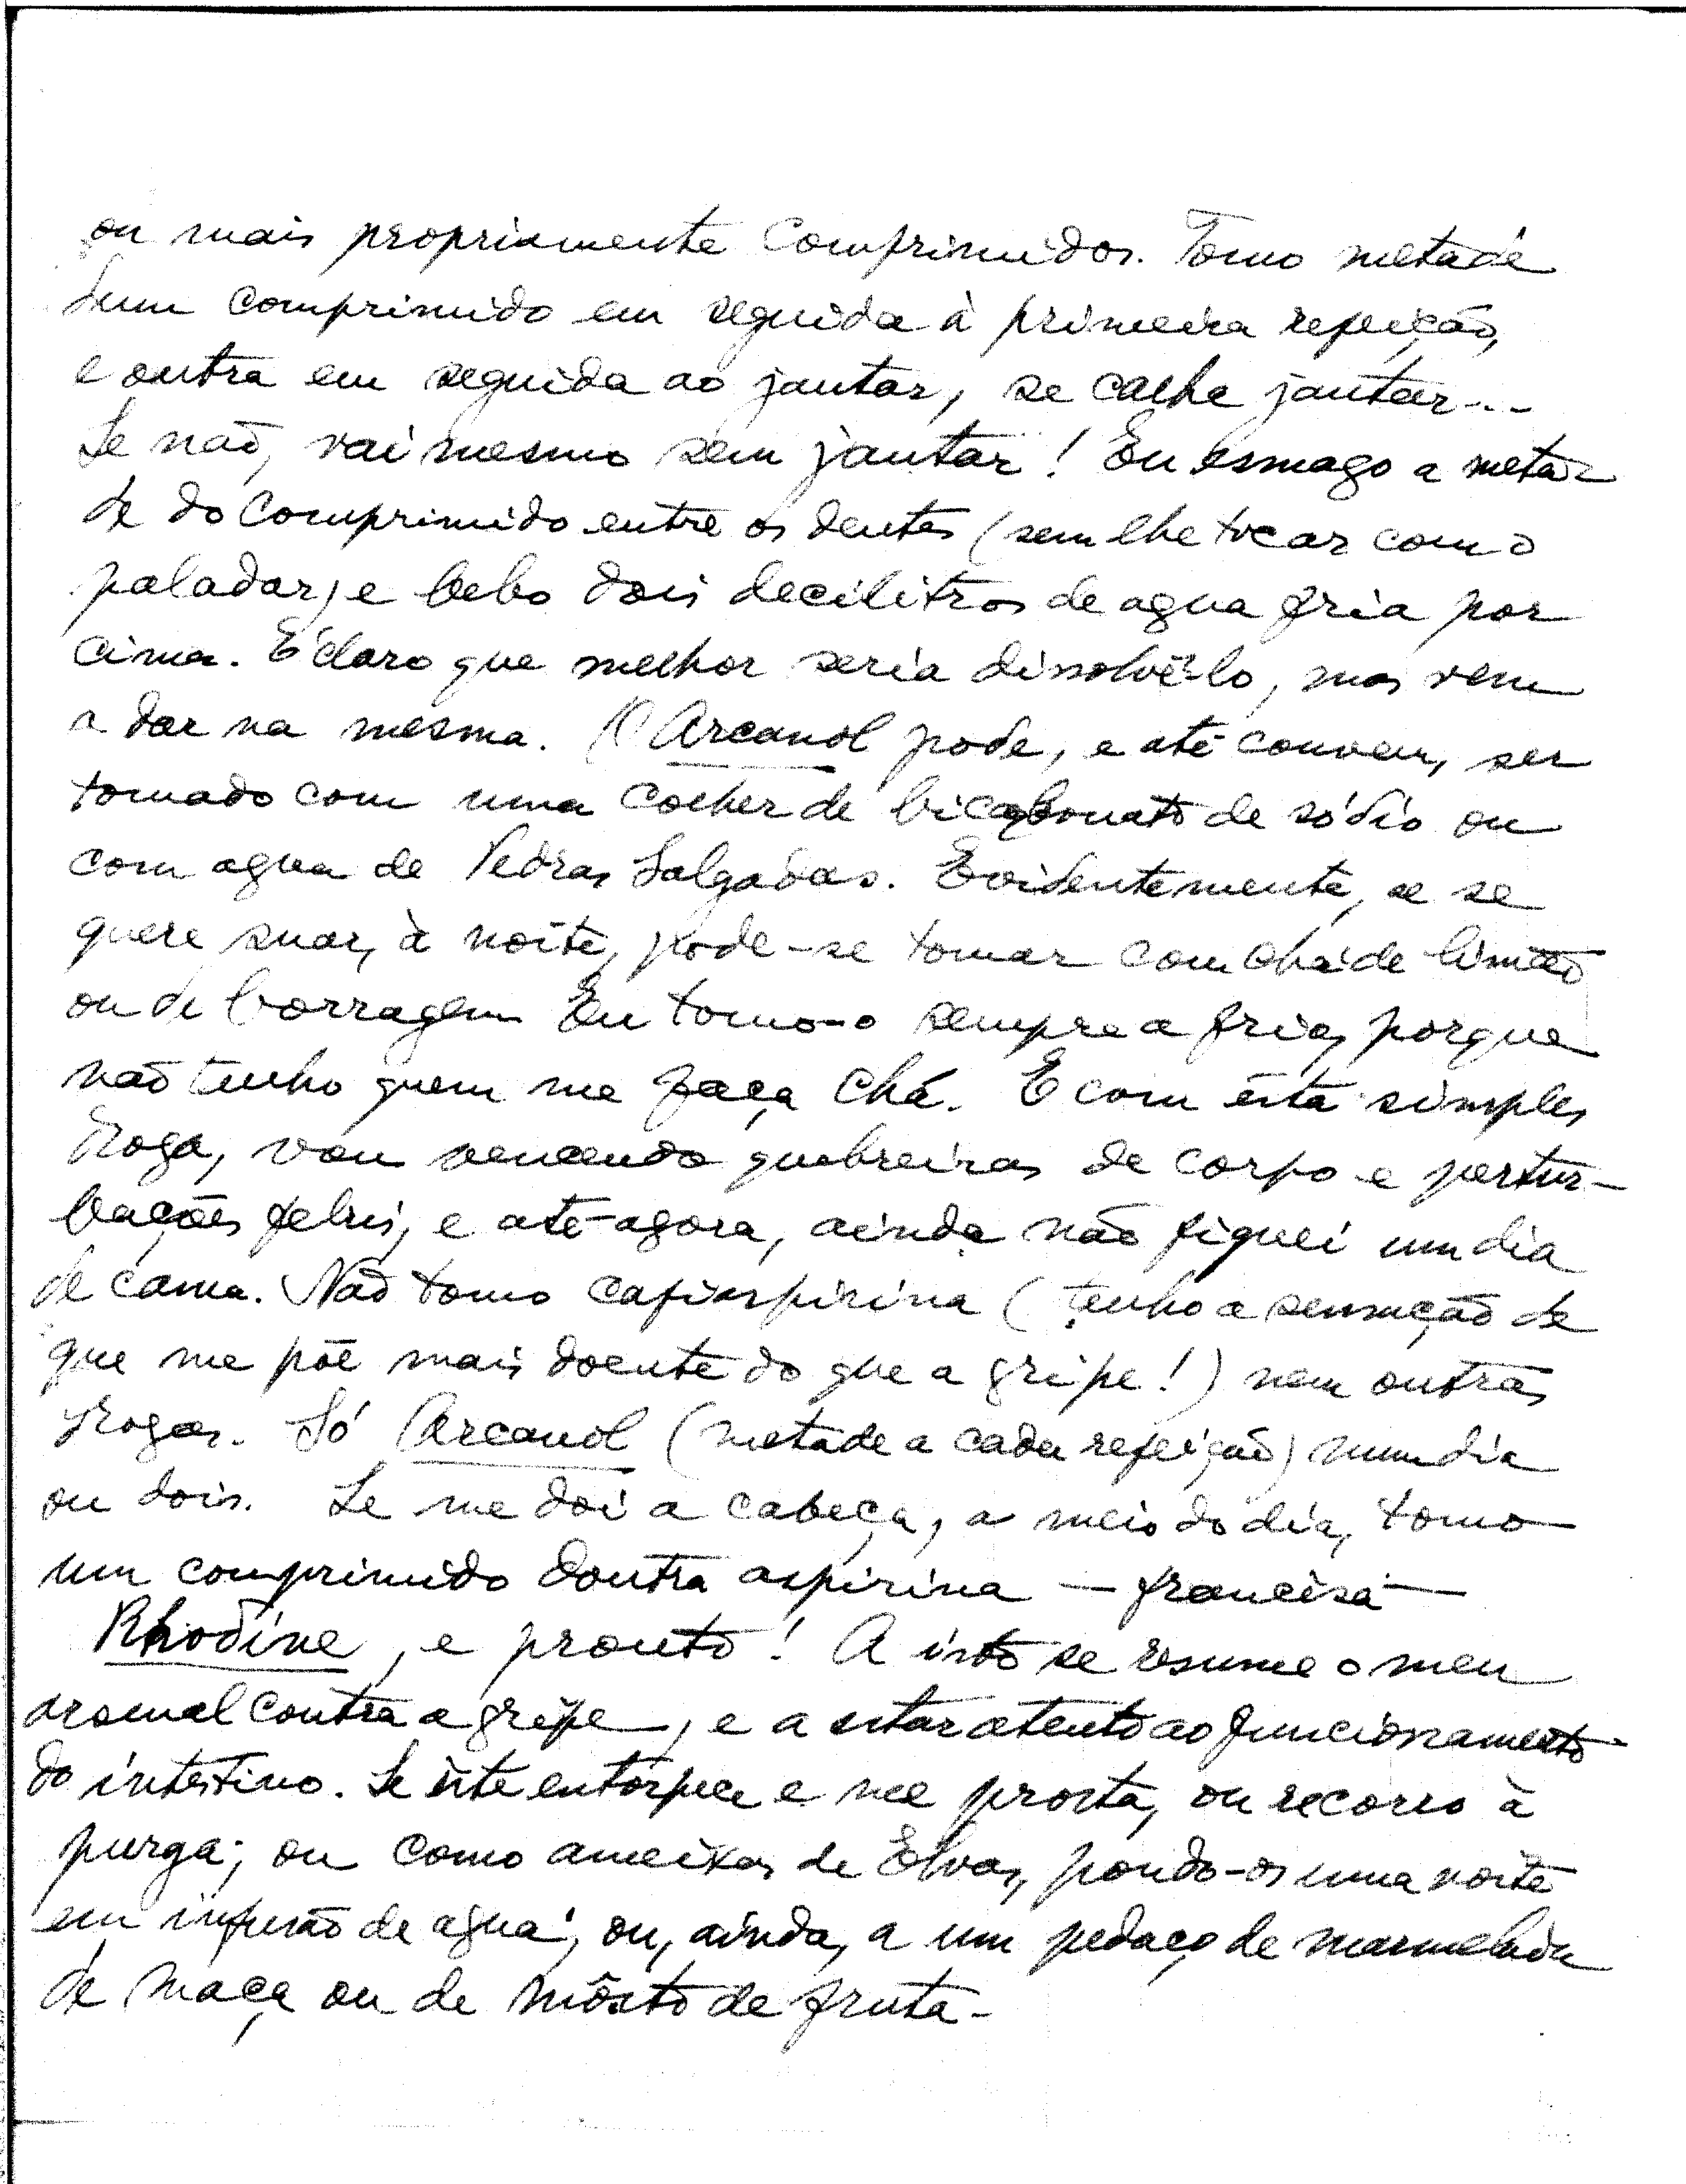 ou mais propriamente comprimidos. Tomo metade
dum comprimido em seguida à primeira refeição,
e outra em seguida ao jantar, se calhe jantar...
Se não, vai mesmo sem jantar! Eu esmago a meta-
de do comprimido entre os dentes (sem lhe tocar com o
paladar) e bebo dois decilitros de agua fria por
cima. É claro que melhor seria dissolvê-lo, mas vem
a dar na mesma. O Arcanol pode, e até convem, ser
tomado com uma colher de bicabonato de sódio ou
com agua de Pedras Salgadas. Evidentemente, se se
quere suar, à noite, pode-se tomar com chá de limão
ou de borragem Eu tomo-o sempre a frio, porque
não tenho quem me faça chá. E com esta simples
droga, vou vencendo quebreiras de corpo e pertur-
bações febris, e até-agora, ainda não fiquei um dia
de cama. Não tomo cafiaspirina (tenho a sensação de
que me põe mais doente do que a gripe!) nem outras
drogas. Só Arcanol (metade a cada refeição) num dia
ou dois. Se me doi a cabeça, a meio do dia, tomo
um comprimido doutra aspirina — francesa —
Rhodine, e pronto! A isto se resume o meu
arsenal contra a gripe, e a estar atento ao funcionamento
do intestino. Se êste entorpece e me prosta, ou recorro à
purga; ou como ameixas de Elvas, pondo-as uma noite
em infusão de agua; ou, ainda, a um pedaço de marmelada
de maçã ou de môsto de fruta-